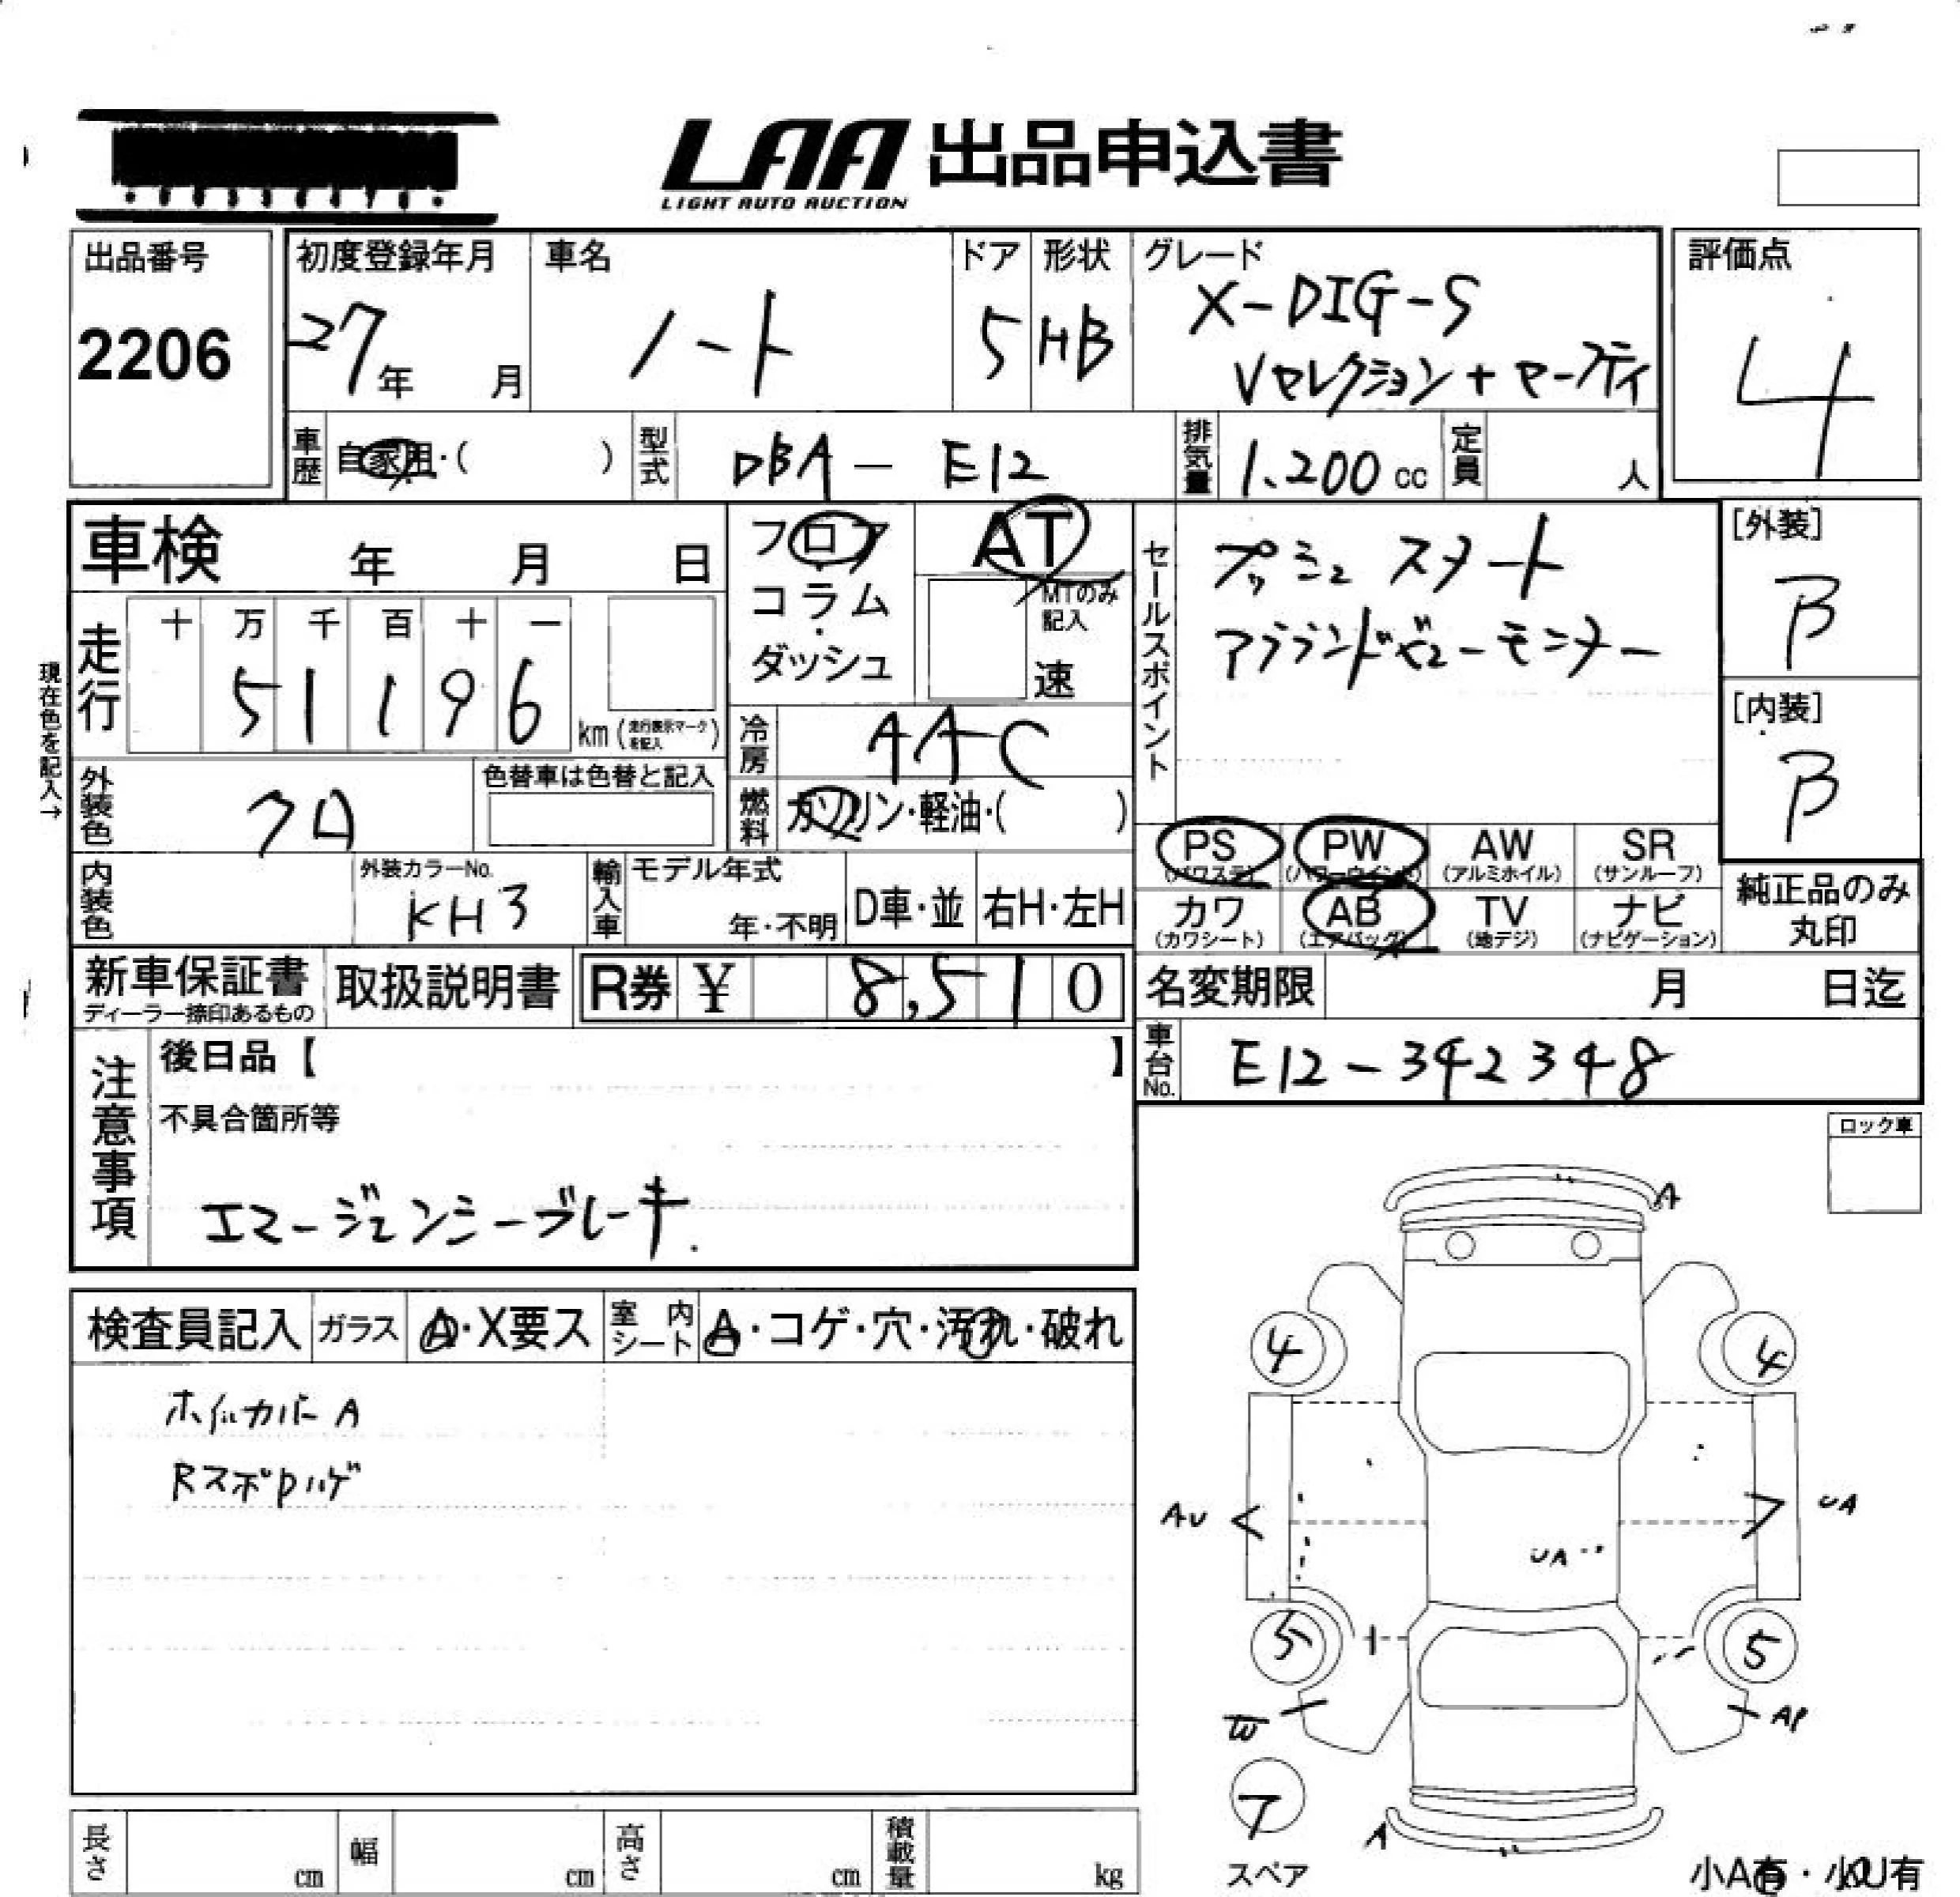 LAA 出品申込書
LIGHT AUTO AUCTION
出品番号
2206
初度登録年月
27年 月
車名
ノート
ドア
5
形状
HB
グレード
X-DIG-S
Vセレクション+セーフティ
評価点
4
車歴
自家用・( )
型式
DBA-E12
排気量
1.200cc
定員
人
車検 年 月 日
フロア
コラム
・
ダッシュ
AT
MTのみ
記入
速
セールスポイント
プッシュスタート
アラウンドビューモニター
[外装]
B
[内装]
B
現在色を記入→
走行
十 万 千 百 十 一
5 1 1 9 6
km(走行表示マークを記入)
冷房
AAC
外装色
クロ
色替車は色替と記入
燃料
ガソリン・軽油・( )
PS
(パワステ)
PW
(パワーウインド)
AW
(アルミホイル)
SR
(サンルーフ)
内装色
外装カラーNo.
KH3
輸入車
モデル年式
年・不明
D車・並
右H・左H
カワ
(カワシート)
AB
(エアバッグ)
TV
(地デジ)
ナビ
(ナビゲーション)
純正品のみ
丸印
新車保証書
ディーラー捺印あるもの
取扱説明書
R券 ¥ 8,510
名変期限 月 日迄
車台No.
E12-342348
注意事項
後日品【 】
不具合箇所等
エマージェンシーブレーキ.
ロック車
検査員記入
ガラス
A・X要ス
室内シート
A・コゲ・穴・汚れ・破れ
ホイルカバーA
RスポPハゲ
A
4
4
AU
UA
UA
5
5
W
AP
7
スペア
A
小A有・小U有
長さ cm
幅 cm
高さ cm
積載量 kg